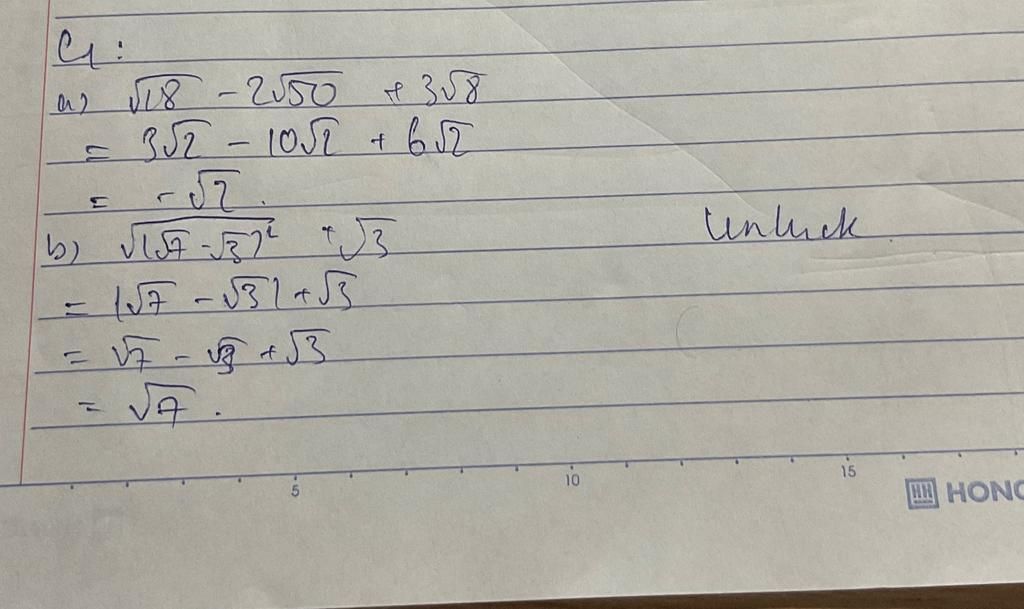 C1:
a) √18 - 2√50 + 3√8
= 3√2 - 10√2 + 6√2
= -√2.
b) √(√7 - √3)² + √3
= |√7 - √3| + √3
= √7 - √3 + √3
= √7.
Unluck
5 10 15
HH HONG